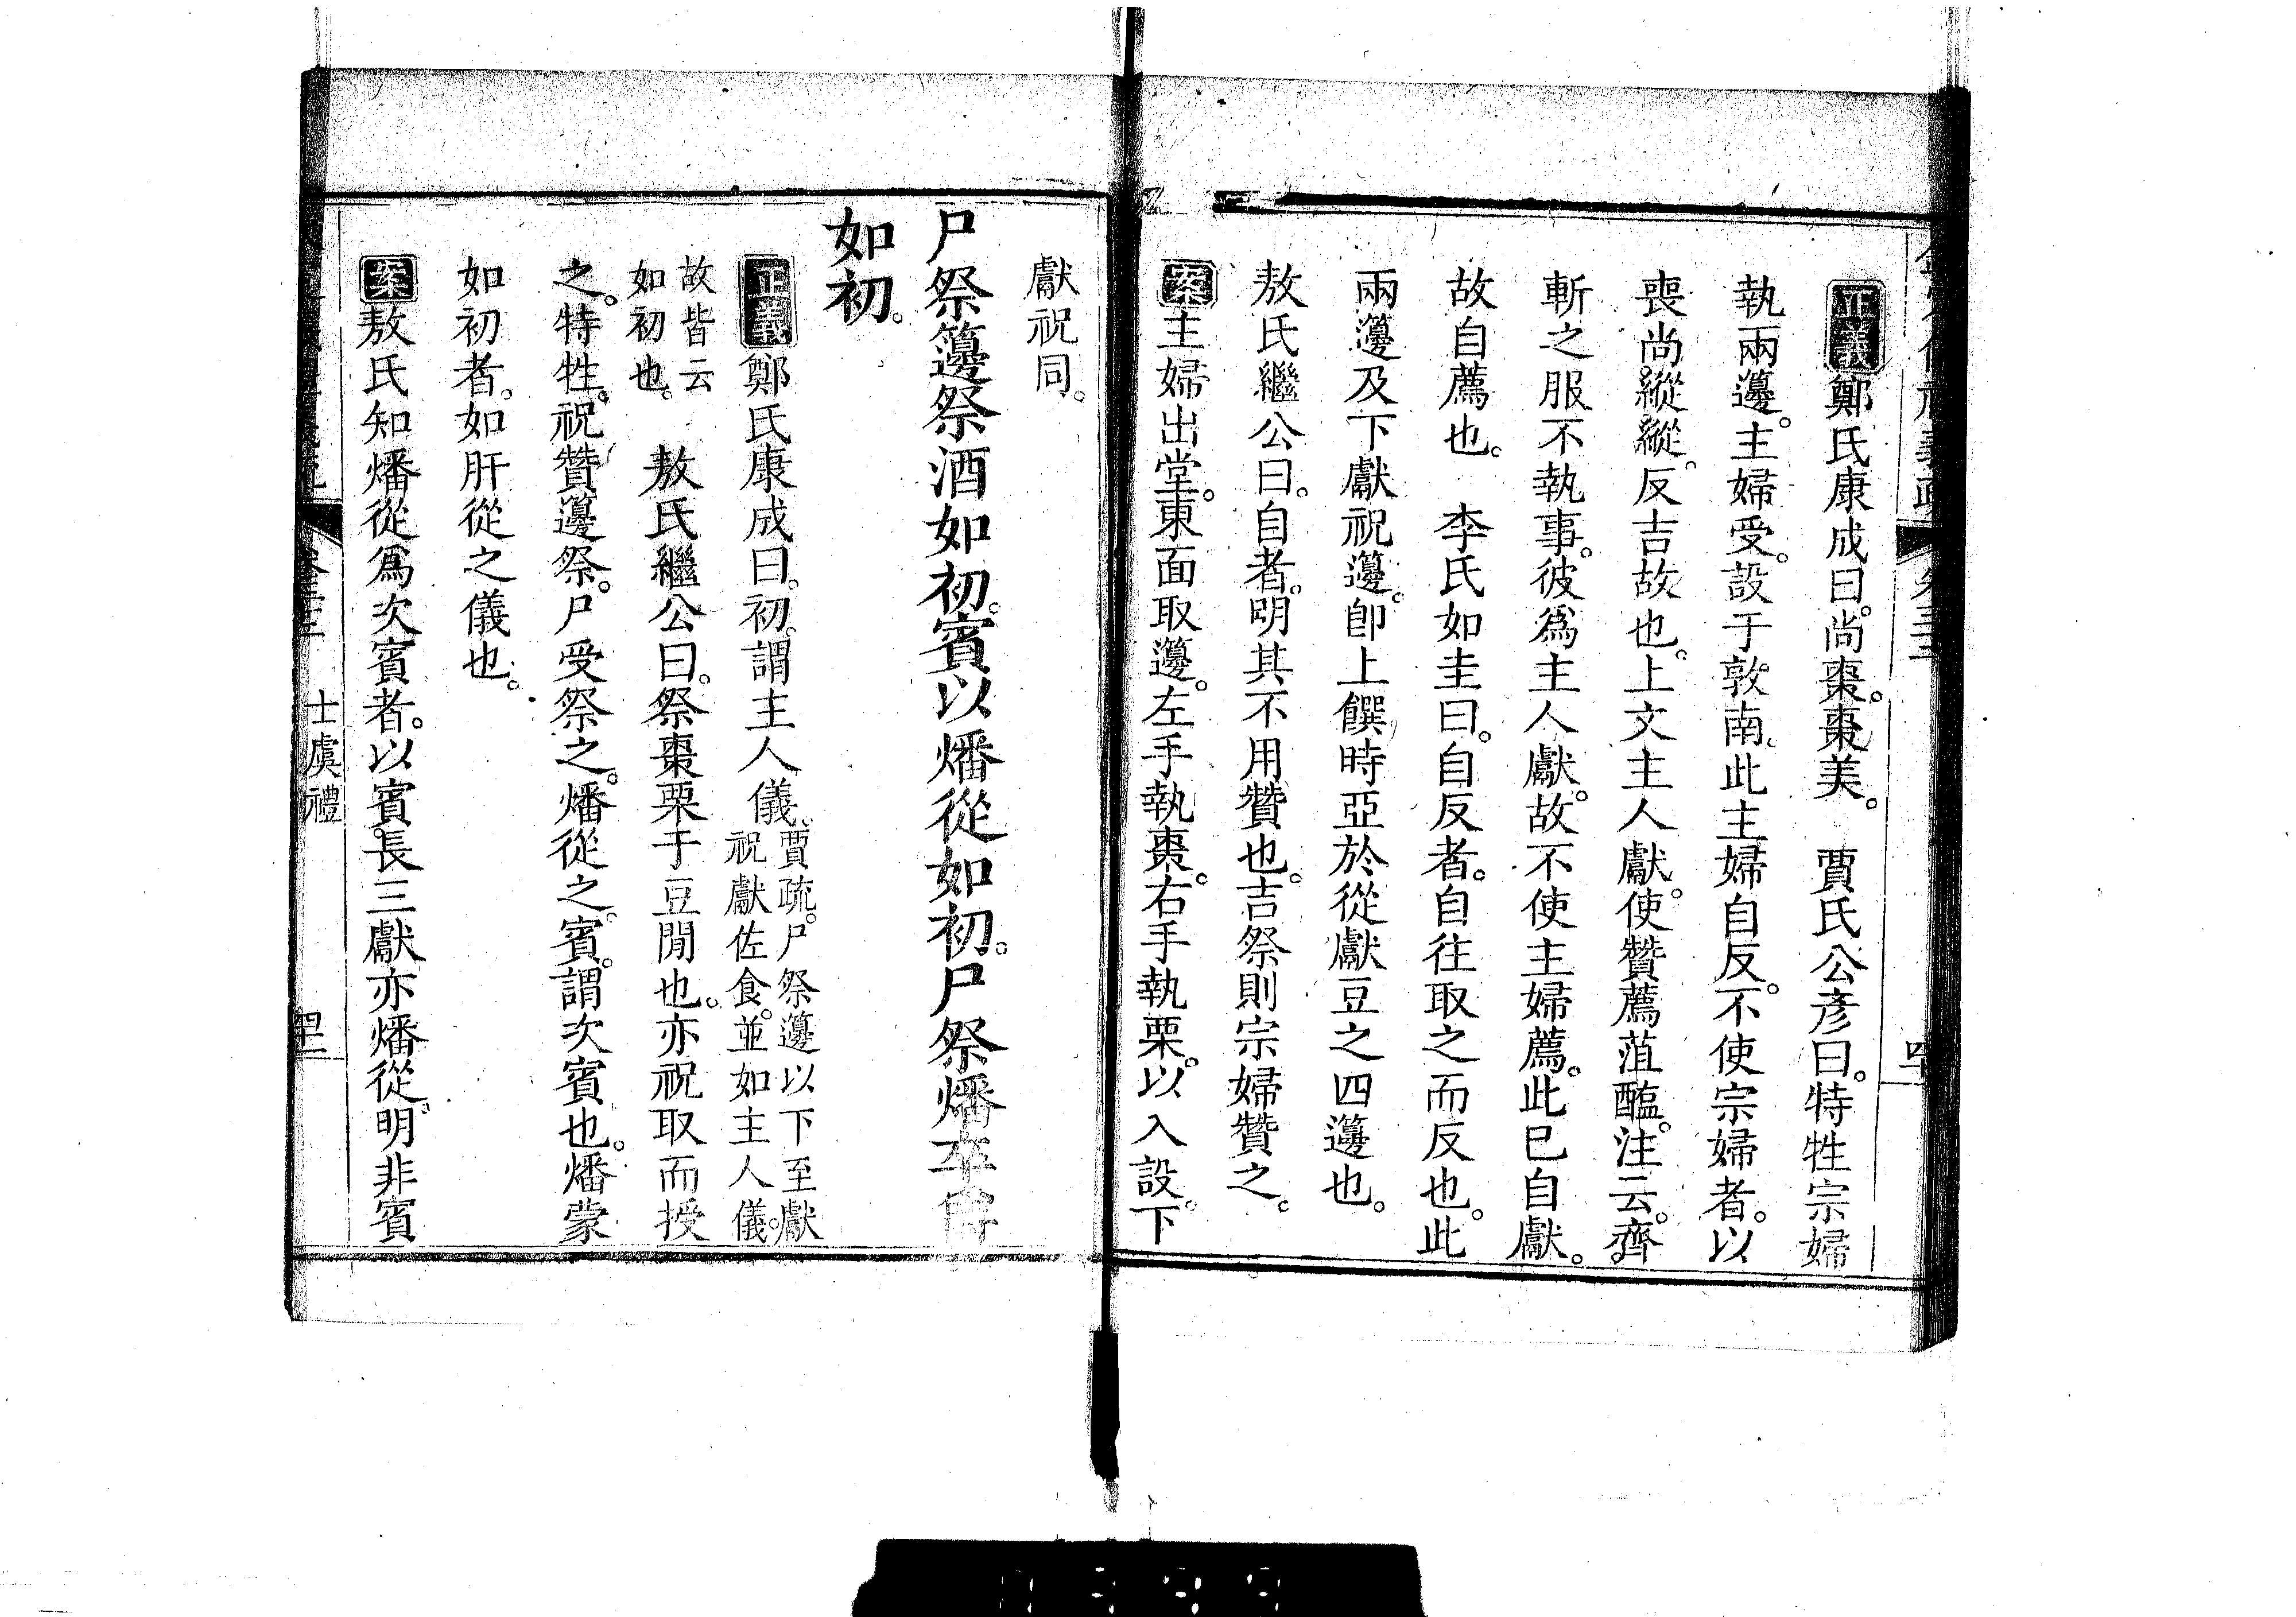 正義鄭氏康成曰。尚棗。棗美。　賈氏公彥曰。特牲宗婦
執兩籩。主婦受。設于敦南。此主婦自反。不使宗婦者。以
喪尚縱縱。反吉故也。上文主人獻。使贊薦菹醢。注云。齊
斬之服不執事。彼爲主人獻。故不使主婦薦。此已自獻。
故自薦也。　李氏如圭曰。自反者。自往取之而反也。此
兩籩及下獻祝籩。卽上饌時亞於從獻豆之四籩也。
敖氏繼公曰。自者。明其不用贊也。吉祭則宗婦贊之。
案主婦出堂。東面取籩。左手執棗。右手執栗。以入設。下
獻祝同。
尸祭籩祭酒如初。賓以燔從如初。尸祭燔卒
如初。
正義鄭氏康成曰。初。謂主人儀。賈疏。尸祭籩以下至獻
祝獻佐食。並如主人儀。
故皆云
如初也。　敖氏繼公曰。祭棗栗于豆閒也。亦祝取而授
之。特牲。祝贊籩祭。尸受祭之。燔從之。賓。謂次賓也。燔蒙
如初者。如肝從之儀也。
案敖氏知燔從爲次賓者。以賓長三獻亦燔從。明非賓
士虞禮